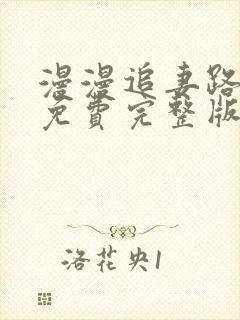 漫漫追妻路
免費完整版
洛花央1